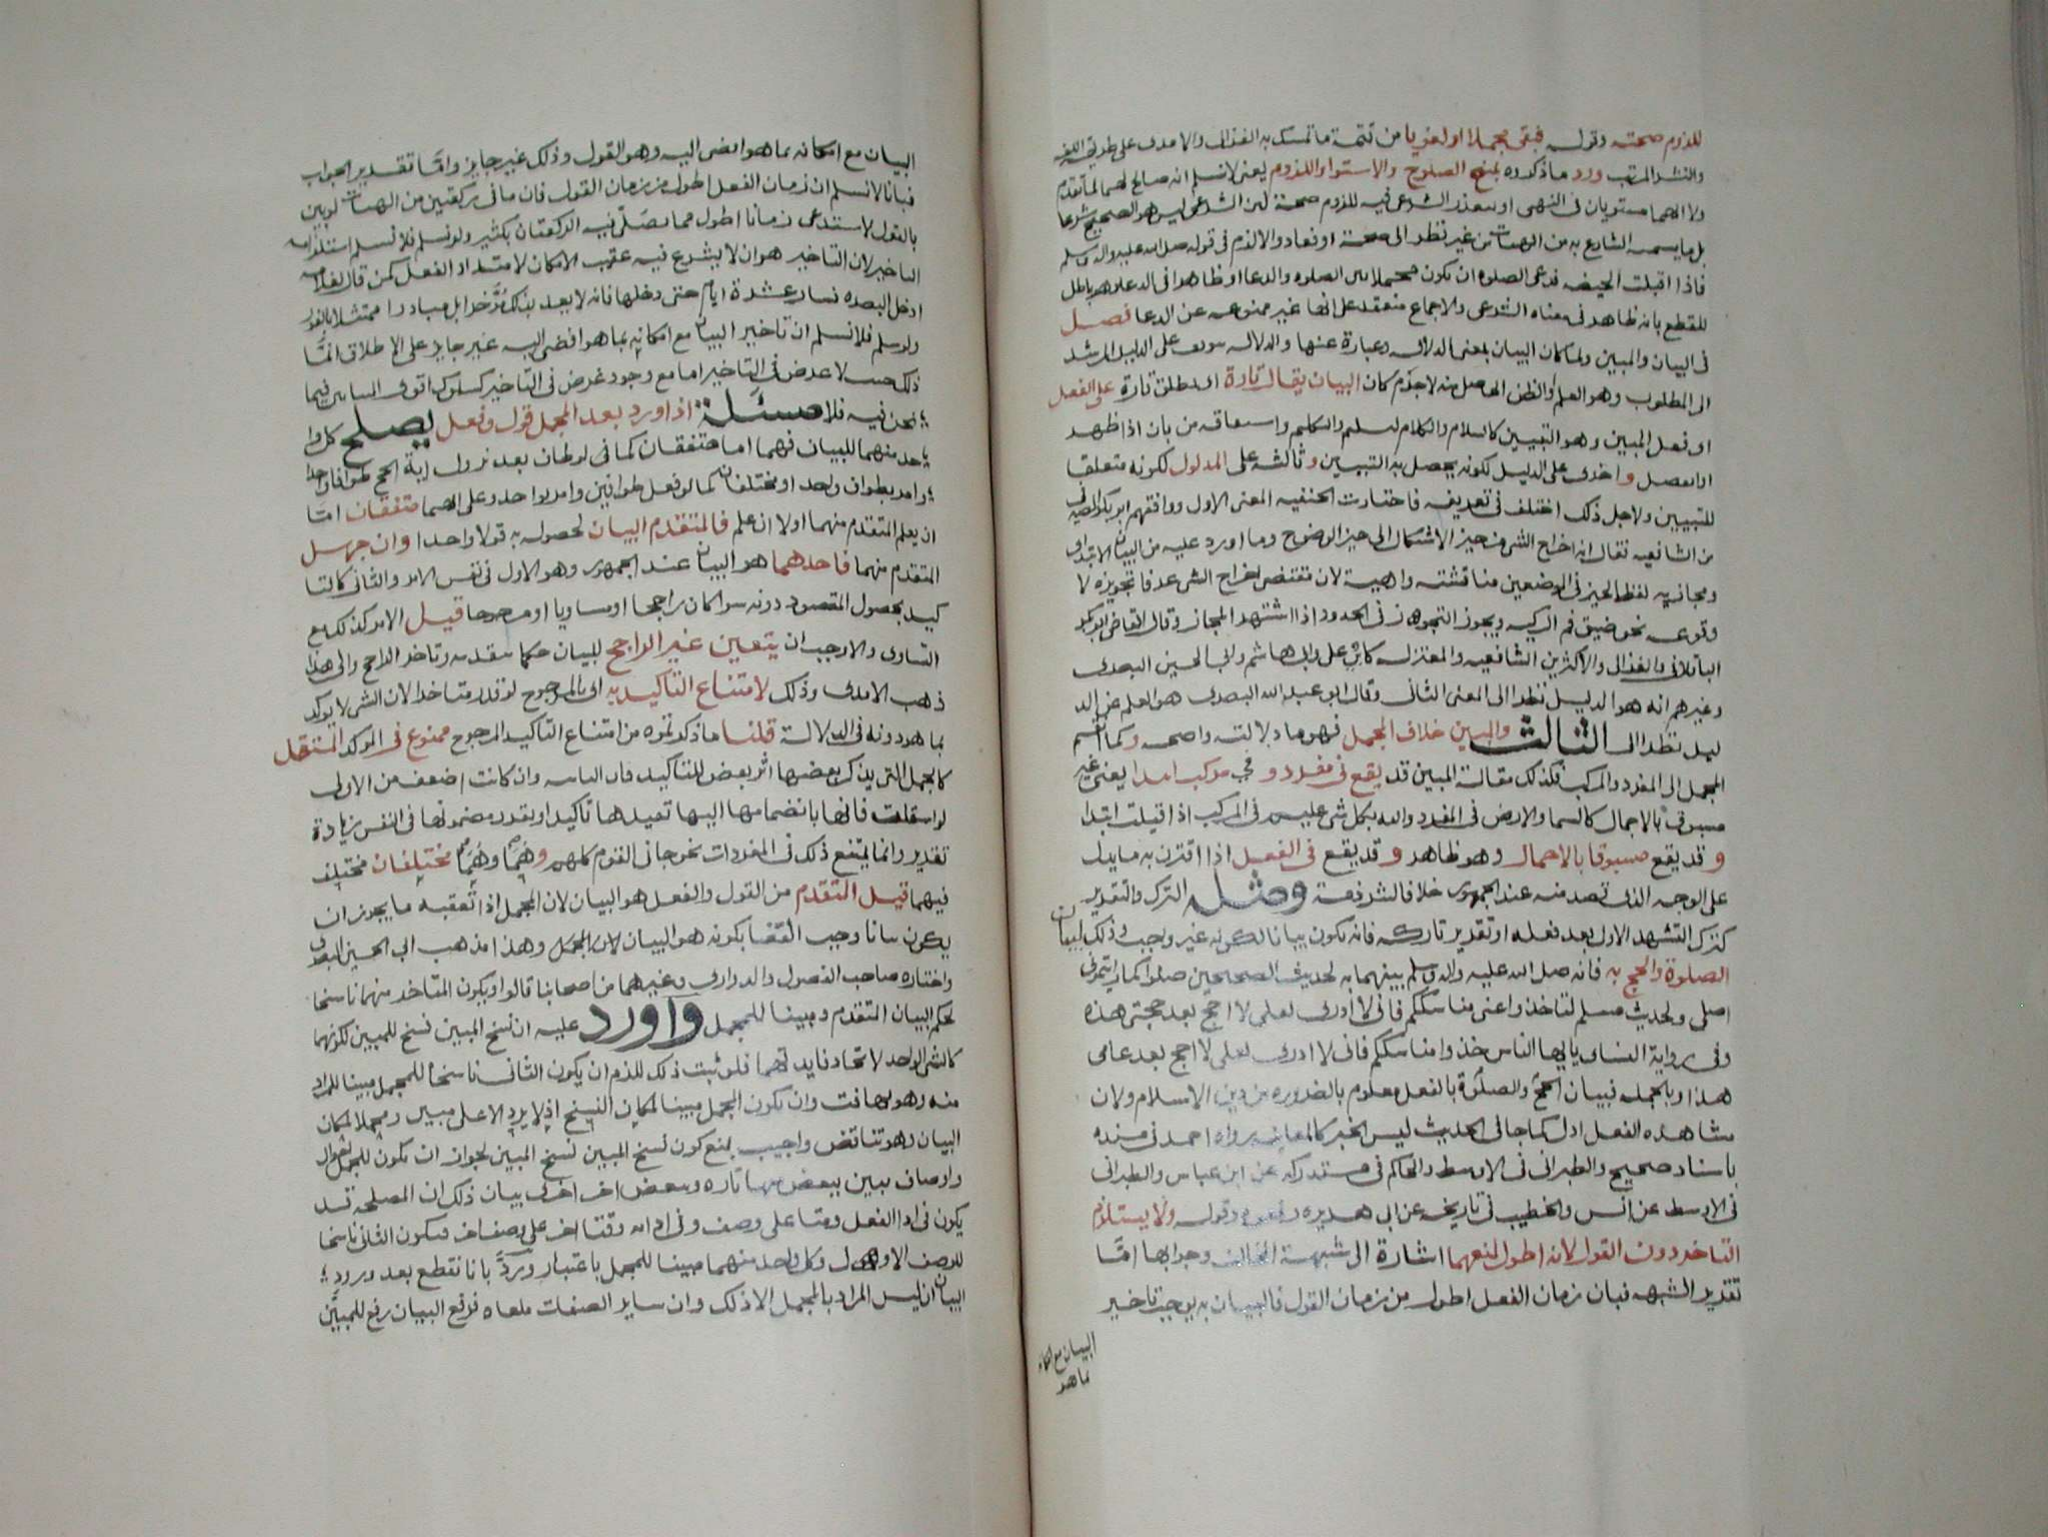 للزوم صحته وقوله فبقى مجملا او لغويا من تتمة ما تمسك به الغزالى والامدى على طريقة اللف
والنشر المرتب ورد ما ذكروه بمنع الصلوح والاستوا واللزوم يعنى لا نسلم انه صالح لهما لما تقدم
ولا انهما مستويان فى النهى او يتعذر الشرعى فيه للزوم صحته لان الشرعى ليس هو الصحيح شرعا
بل ما يسميه الشارع به من الهيات من غير نظر الى صحة او فساد والا لزم فى قوله صلى الله عليه واله وسلم
فاذا اقبلت الحيضه فدعى الصلوه ان يكون مجملا بين الصلوه والدعا او ظاهرا فى الدعا وهو باطل
للقطع بانه ظاهر فى معناه الشرعى والاجماع منعقد على انها غير ممنوعه عن الدعا فصل
فى البيان والمبين ولما كان البيان بمعنى الدلاله وعبارة عنها والدلاله موقوف على الدليل المرشد
الى المطلوب وهو العلم والظن الحاصل منه لا جرم كان البيان يقال تارة اى يطلق تارة على الفعل
او فعل المبين وهو التبيين كالسلام والكلام لتسليم والتكليم واشتقاقه من بان اذا ظهر
او انفصل واخرى على الدليل لكونه يحصل به التبيين وثالثه على المدلول لكونه متعلقا
للتبيين ولاجل ذلك اختلف فى تعريفه فاختارت الحنفيه المعنى الاول ووافقهم ابو بكر الصيرفى
من الشافعيه فقال انه اخراج الشى من حيز الاشكال الى حيز الوضوح وما اورد عليه من البيان الابتداى
ومجازيه لفظ الحيز فى الوضعين مناقشته واهية لان مقتضى اخراج الشى عرفا تجويزه لا
وقوعه نحو ضيق فم الركيه ويجوز التجوز فى الحدود اذا اشتهر المجاز وقال القاضى ابو بكر
الباقلانى والغزالى والاكثر من الشافعيه والمعتزله كابى على وابى هاشم وابى الحسين البصرى
وغيرهم انه هو الدليل نظرا الى المعنى الثانى وقال ابو عبد الله البصرى هو العلم عن الد
ليل نظرا الى الثالث والمبين خلاف المجمل فهو ما دلالته واضحه وكما انقسم
المجمل الى المفرد والمركب فكذلك مقالة المبين قد يقع فى مفرد و فى مركب ابتدا يعنى غير
مسبوق بالاجمال كالسما والارض فى المفرد والله بكل شى عليم فى المركب اذا قيلت ابتدا
و قد يقع مسبوقا بالاجمال وهو ظاهر و قد يقع فى الفعل اذا اقترن به ما يدل
على الوجه الذى قصد منه عند الجمهور خلافا لشرذمة ومثله الترك والتقرير
كترك التشهد الاول بعد فعله او تقرير تاركه فانه يكون بيانا لكونه غير واجب وذلك لبيان
الصلوة والحج به فانه صلى الله عليه واله وسلم بينهما به لحديث الصحيحين صلوا كما رايتمونى
اصلى ولحديث مسلم لتاخذوا عنى مناسككم فانى لا ادرى لعلى لا احج بعد حجتى هذه
وفى رواية النساى يا ايها الناس خذوا مناسككم فانى لا ادرى لعلى لا احج بعد عامى
هذا وبالجمله فبيان الحج والصلوة بالفعل معلوم بالضروره من دين الاسلام ولان
مشاهده الفعل ادل كما جا فى الحديث ليس الخبر كالمعاينه رواه احمد فى مسنده
باسناد صحيح والطبرانى فى الاوسط والحاكم فى مستدركه عن ابن عباس والطبرانى
فى الاوسط عن انس والخطيب فى تاريخه عن ابى هريره رفعوه وقوله ولا يستلزم
التاخر دون القول لانه اطول لمنعهما اشارة الى شبهة المخالف وجوابها امّا
تقرير الشبهه فبان زمان الفعل اطول من زمان القول فالبيان به يوجب تاخير
البيان مع امكانه
بما هو
البيان مع امكانه بما هو افضى اليه وهو القول وذلك غير جايز وامّا تقدير الجواب
فبانا لا نسلم ان زمان الفعل اطول من زمان القول فان ما فى ركعتين من الهيات لو بين
بالقول لاستدعى زمانا اطول مما يصلّى فيه الركعتان بكثير ولو نسلم فلا نسلم استلزامه
التاخير لان التاخير هو ان لا يشرع فيه عقيب الامكان لا امتداد الفعل كمن قال لغلامه
ادخل البصره فسار عشرة ايام حتى دخلها فانه لا يعد بذلك مؤخرا بل مبادرا ممتثلا بالفور
ولو سلم فلا نسلم ان تاخير البيان مع امكانه بما هو افضى اليه غير جايز على الاطلاق انمّا
ذلك حيث لا غرض فى التاخير اما مع وجود غرض فى التاخير كسلوك اقوى البيانين فيما
نحن فيه فلا مسئلة اذا ورد بعد المجمل قول وفعل يصلح كل وا
حد منهما للبيان فهما اما متفقان كما فى لو طاف بعد نزول اية الحج طوافا واحدا
وامر بطواف واحد او مختلفان كما لو فعل طوافين وامر بواحد وعلى انهما متفقان امّا
ان يعلم المتقدم منهما اولا ان علم فالمتقدم البيان لحصوله به قولا واحدا وان جهل
المتقدم منهما فاحدهما هو البيان عند الجمهور وهو الاول فى نفس الامر والثانى كالتا
كيد بحصول المقصود دونه سوا كان راجحا او مساويا او مرجوحا قيل الامر كذلك مع
التساوى والا وجب ان يتعين غير الراجح للبيان حكما بتقدمه وتاخر الراجح والى هذا
ذهب الامدى وذلك لامتناع التاكيد به اى بالمرجوح لو قدر متاخرا لان الشى لا يوكد
بما هو دونه فى الدلالة قلنا ما ذكرتموه من امتناع التاكيد المرجوح ممنوع فى الموكد المستقل
كالجمل التى يذكر بعضها اثر بعض للتاكيد فان الثانيه وان كانت اضعف من الاولى
لو استقلت فانها بانضمامها اليها تفيدها تاكيدا ويقدر مضمونها فى النفس زيادة
تقدير وانما يمتنع ذلك فى المفردات نحو جانى القوم كلهم وهُمَا وهُمَا مختلفان مختلف
فيهما قيل المتقدم من القول والفعل هو البيان لان المجمل اذا تعقبه ما يجوز ان
يكون بيانا وجب القضا بكونه هو البيان لان المجمل وهذا مذهب ابى الحسين البصرى
واختاره صاحب الفصول والدوارى وغيرهما من اصحابنا قالوا ويكون المتاخر منهما ناسخا
لحكم البيان المتقدم ومبينا للمجمل واورد عليه ان نسخ المبين نسخ للمبين لكونهما
كالشى الواحد لاتحاد فايدتهما فلو ثبت ذلك للزم ان يكون الثانى ناسخا للمجمل مبينا للمراد
منه وهو تهافت وان يكون المجمل مبينا لمكان النسخ اذ لا يرد الا على مبين ومجملا لمكان
البيان وهو تناقض واجيب بمنع كون نسخ المبين نسخ المبين لجواز ان يكون للمجمل احوال
واوصاف يبين ببعض منها تاره وببعض اخر اخرى بيان ذلك ان المصلحه قد
يكون فى ادا الفعل وقتا على وصف وفى ادائه وقتا اخر على وصف اخر فيكون الثانى ناسخا
للوصف الاول وكل واحد منهما مبينا للمجمل باعتبار وردّ بانا نقطع بعد ورود
البيان ان ليس المراد بالمجمل الا ذلك وان ساير الصفات ملغاه فرفع البيان رفع للمبيّن